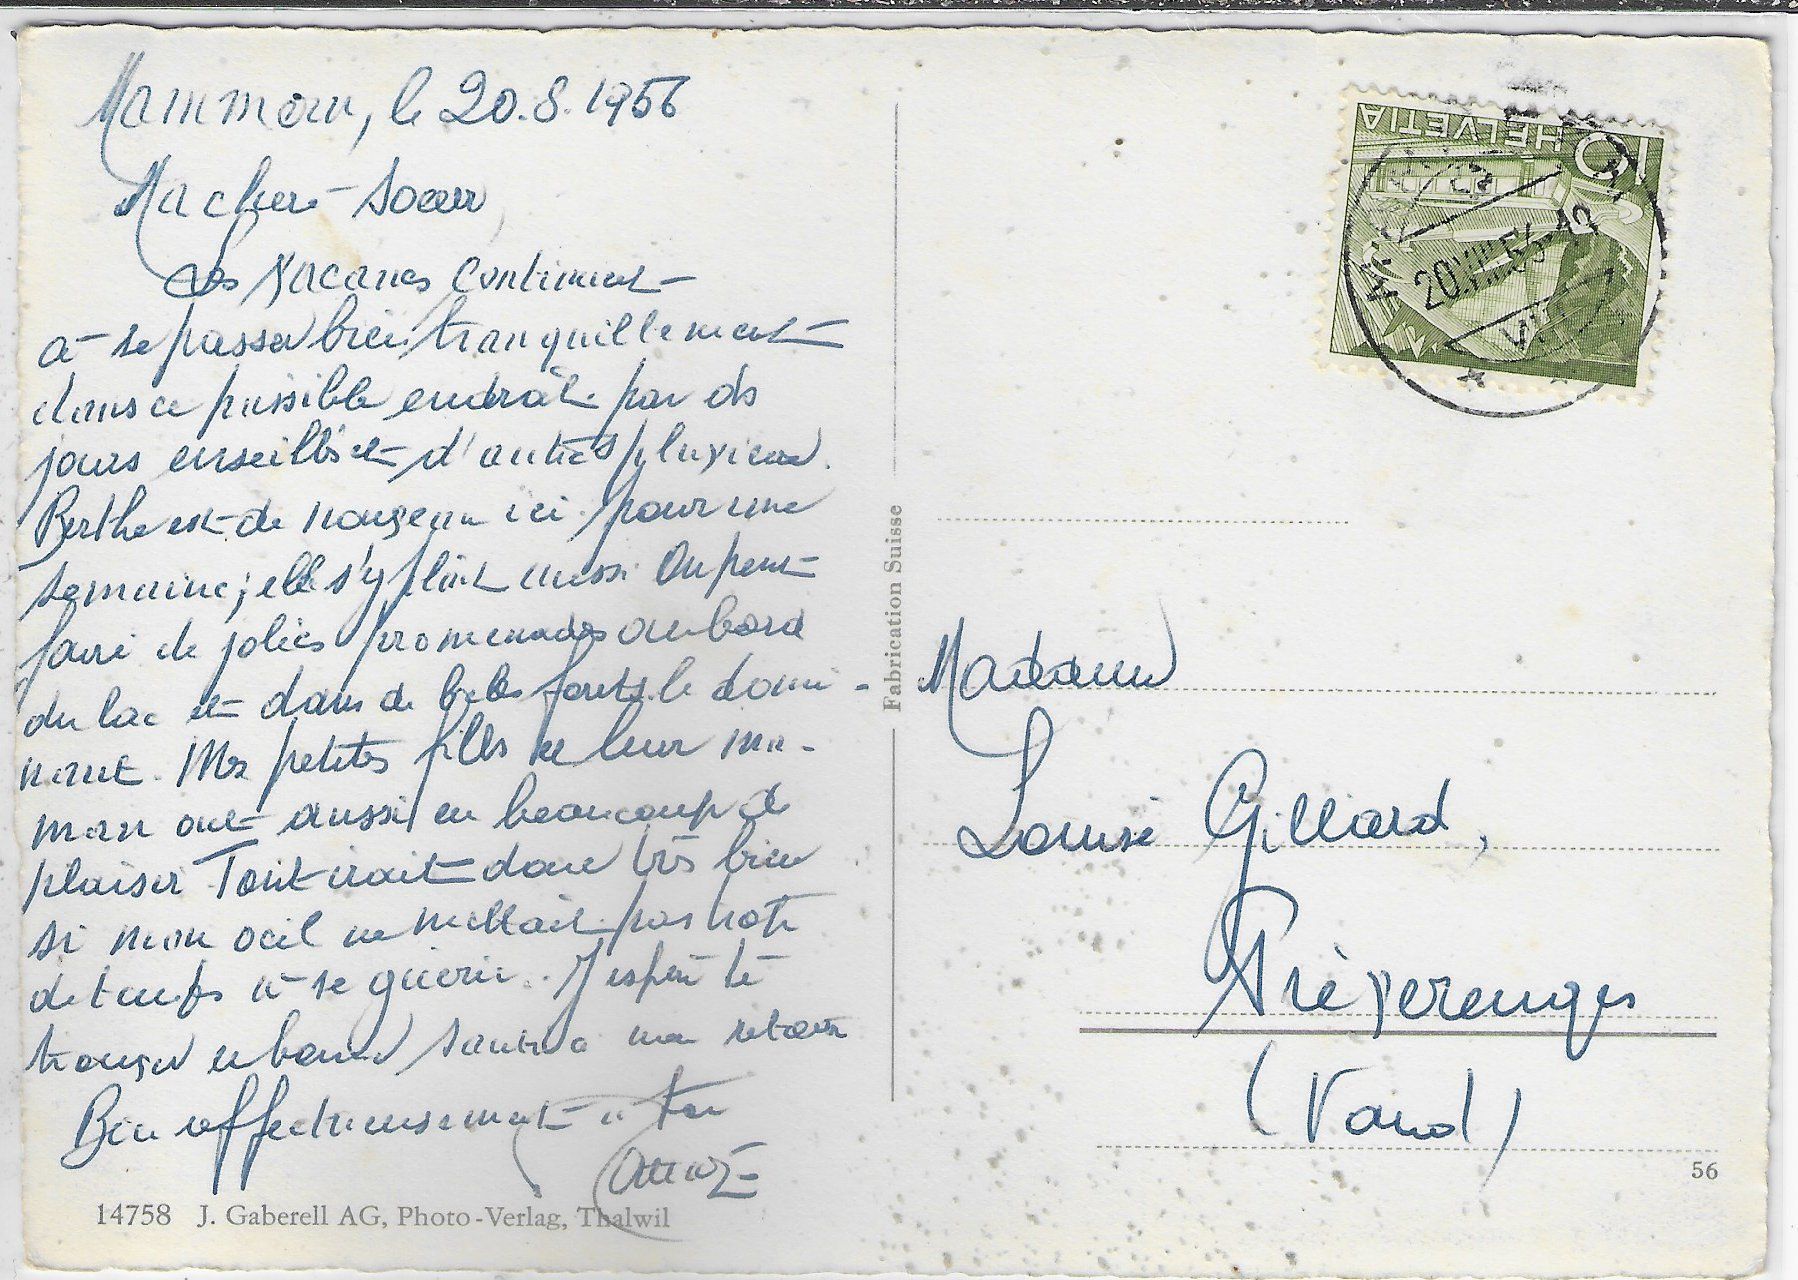 Mammern, le 20.8.1956
Ma chère Soeur
Les vacances continuent
à se passer bien tranquillement
dans ce paisible endroit par des
jours ensoleillés et d'autres pluvieux.
Berthe est de nouveau ici pour une
semaine; elle s'y plait aussi. On peut
faire de jolies promenades au bord
du lac et dans de belles forêts le domi-
nant. Mes petites filles et leur ma-
man ont aussi eu beaucoup de
plaisir. Tout irait donc très bien
si mon oeil ne mettait pas
de temps à se guérir. J'espère te
trouver en bonne santé à mon retour
Bien affectueusement à toi
14758 J. Gaberell AG, Photo-Verlag, Thalwil
Fabrication Suisse
HELVETIA
10
20.VIII.56-12
Madame
Louise Gilliard,
Préverenges
(Vaud)
56